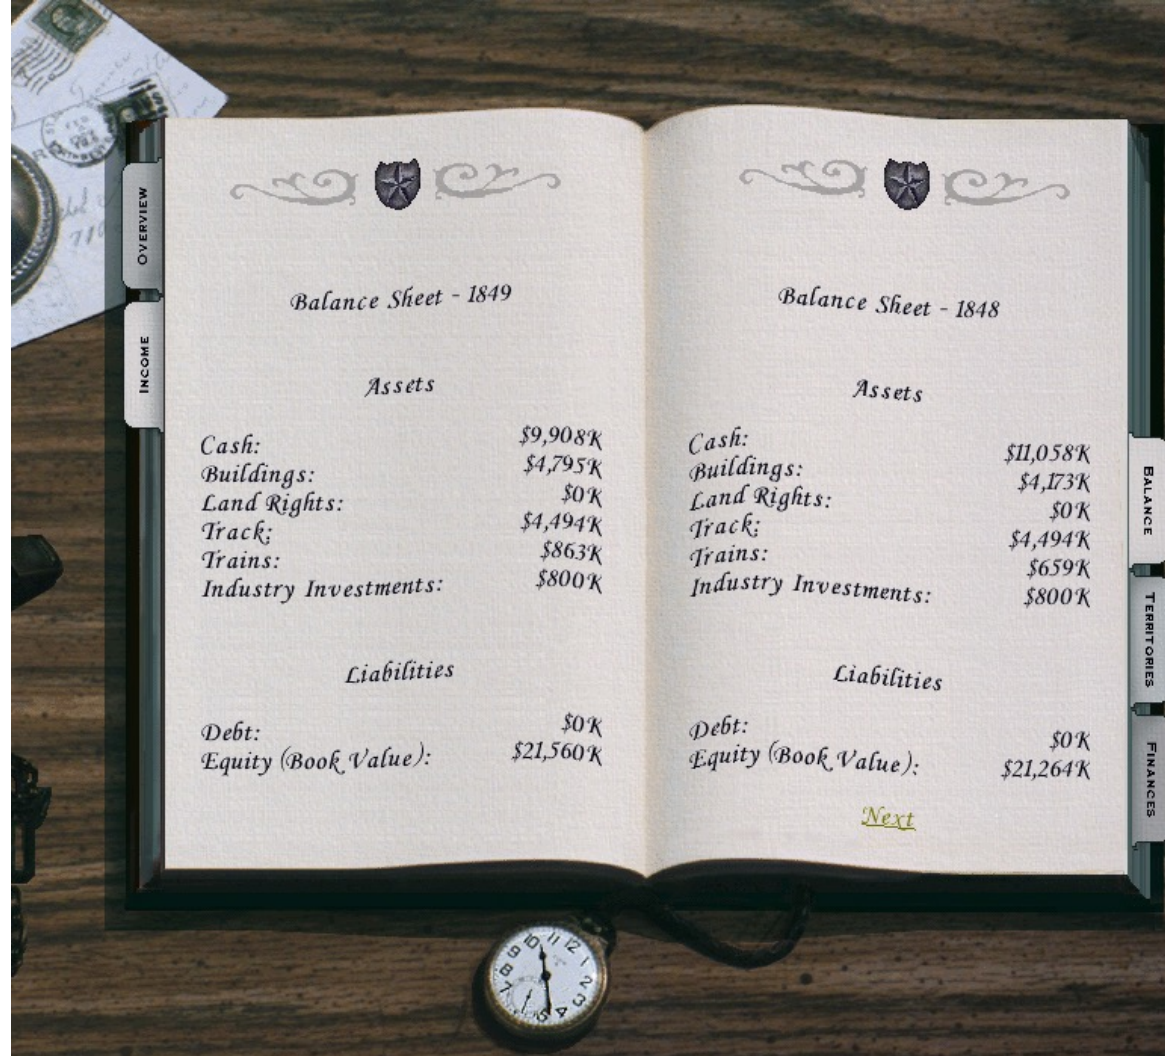 OVERVIEW
INCOME
Balance Sheet - 1849
Assets
Cash: $9,908K
Buildings: $4,795K
Land Rights: $0K
Track: $4,494K
Trains: $863K
Industry Investments: $800K
Liabilities
Debt: $0K
Equity (Book Value): $21,560K
Balance Sheet - 1848
Assets
Cash: $11,058K
Buildings: $4,173K
Land Rights: $0K
Track: $4,494K
Trains: $659K
Industry Investments: $800K
Liabilities
Debt: $0K
Equity (Book Value): $21,264K
Next
BALANCE
TERRITORIES
FINANCES
10 11 12 1 2 3 4 5 7 8 9